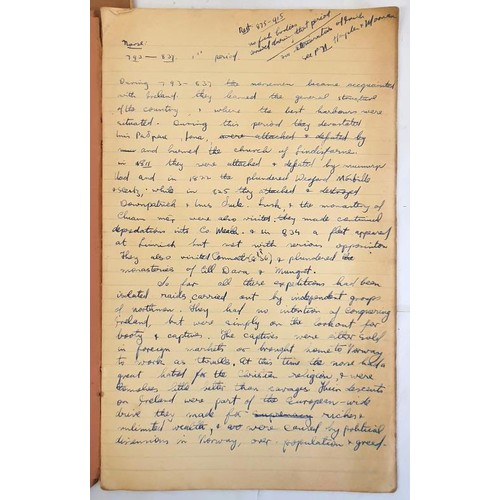 Rest 875-915
no fresh bodies
arrived during that period
Norse
793 - 837. 1st period.
During 793-837 the norsemen became acquainted
with Ireland they learned the general structure
of the country, & where the best harbours were
situated. During this period they devastated
Inis Patrane, Iona, were attacked & defeated by
and burned the church of Lindisfarne.
in 811 they were attacked & defeated by
and in 1822 the plundered Wexford
while in 825 they attacked & destroyed
Downpatrick & Lusk & the monastery of
Cluain mor were also visited; they made continual
depredation into Co Meath. & in 834 a fleet appeared
at Limerick but met with serious opposition
They also visited Connacht & plundered the
monasteries of Cill Dara & Munget.
So far all these expeditions had been
isolated raids carried out by independent groups
of northmen. They had no intention of conquering
Ireland, but were simply on the lookout for
booty & captives. The captives were after sold
in foreign markets or brought some to Norway
to work as thralls. At this time the norse had a
great hatred for the Christian religion, & were
themselves little better than savages. Their descents
on Ireland were part of the European-wide
drive they made for supremacy riches &
unlimited wealth, & were caused by political
dissensions in Norway, over-population & greed.